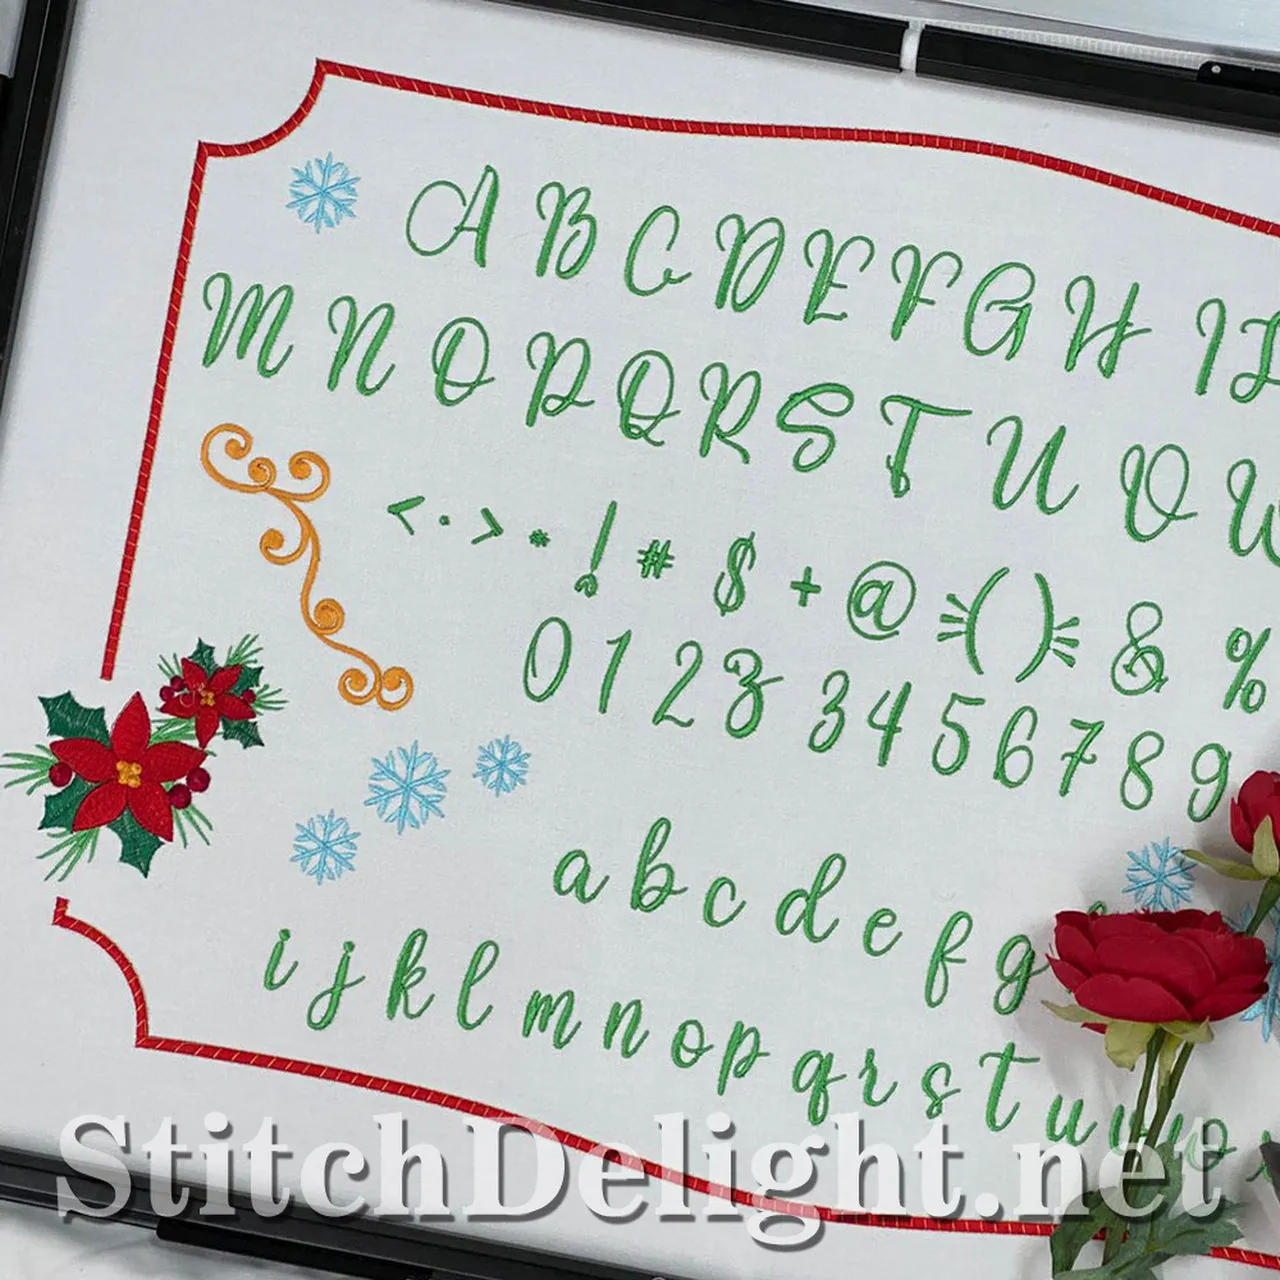 A B C D E F G H I
M N O P Q R S T U V W
< . > * ! # $ + @ ( ) & %
0 1 2 3 3 4 5 6 7 8 9
a b c d e f g
i j k l m n o p q r s t u
StitchDelight.net